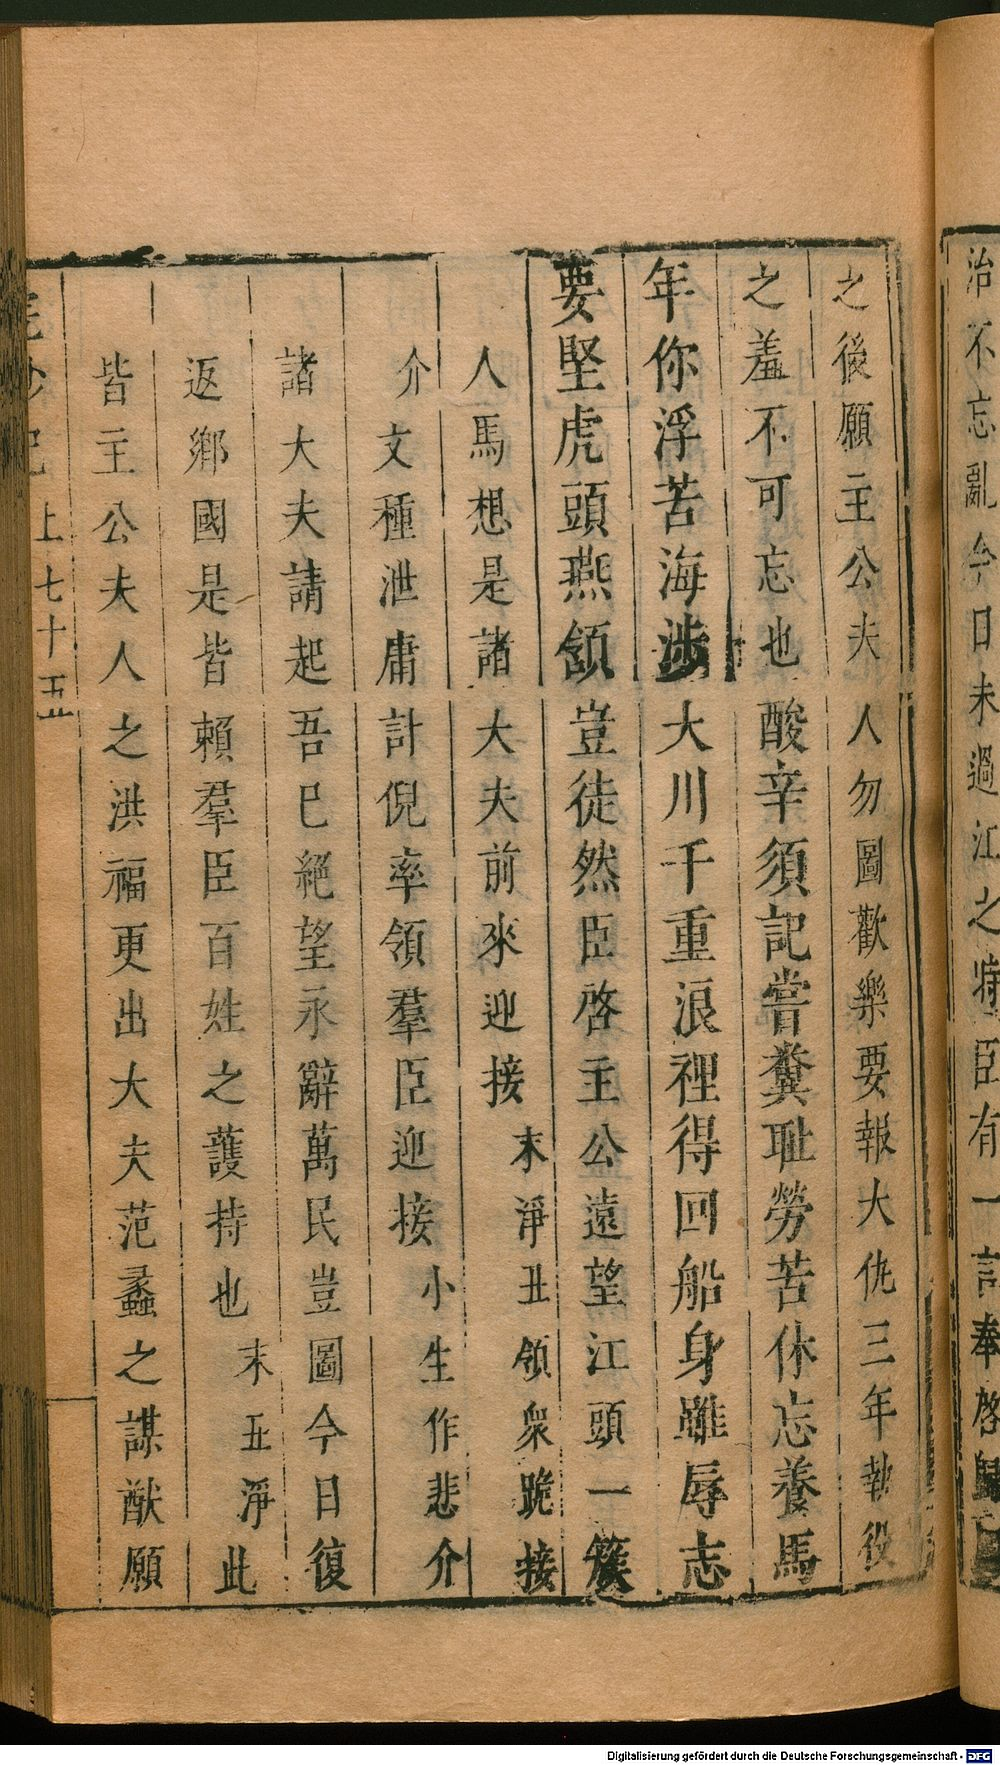 治不忘亂今日未過江之時臣有一言奉啓歸
之後願主公夫人勿圖歡樂要報大仇三年執役
之羞不可忘也酸辛須記嘗糞耻勞苦休忘養馬
年你浮苦海涉大川千重浪裡得回船身雖辱志
要堅虎頭燕頷豈徒然臣啓主公遠望江頭一簇
人馬想是諸大夫前來迎接末淨丑領衆跪接
介文種泄庸計倪率領羣臣迎接小生作悲介
諸大夫請起吾巳絕望永辭萬民豈圖今日復
返鄉國是皆賴羣臣百姓之護持也末丑淨此
皆主公夫人之洪福更出大夫范蠡之謀猷願
浣紗記上七十五
Digitalisierung gefördert durch die Deutsche Forschungsgemeinschaft - DFG